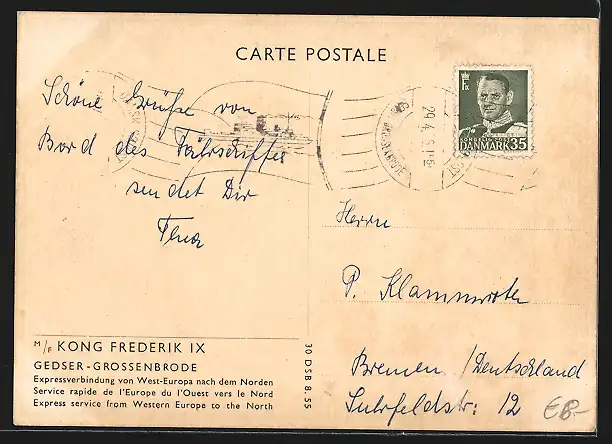 CARTE POSTALE
Schöne Grüße von
Bord des Fährschiffes
sendet Dir
DANMARK 35
Herrn
P. Klammroth
Bremen /Deutschland
Suhrfeldstr. 12
€8.-
M/F KONG FREDERIK IX
GEDSER - GROSSENBRODE
Expressverbindung von West-Europa nach dem Norden
Service rapide de l'Europe du l'Ouest vers le Nord
Express service from Western Europe to the North
30 DSB 8. 55